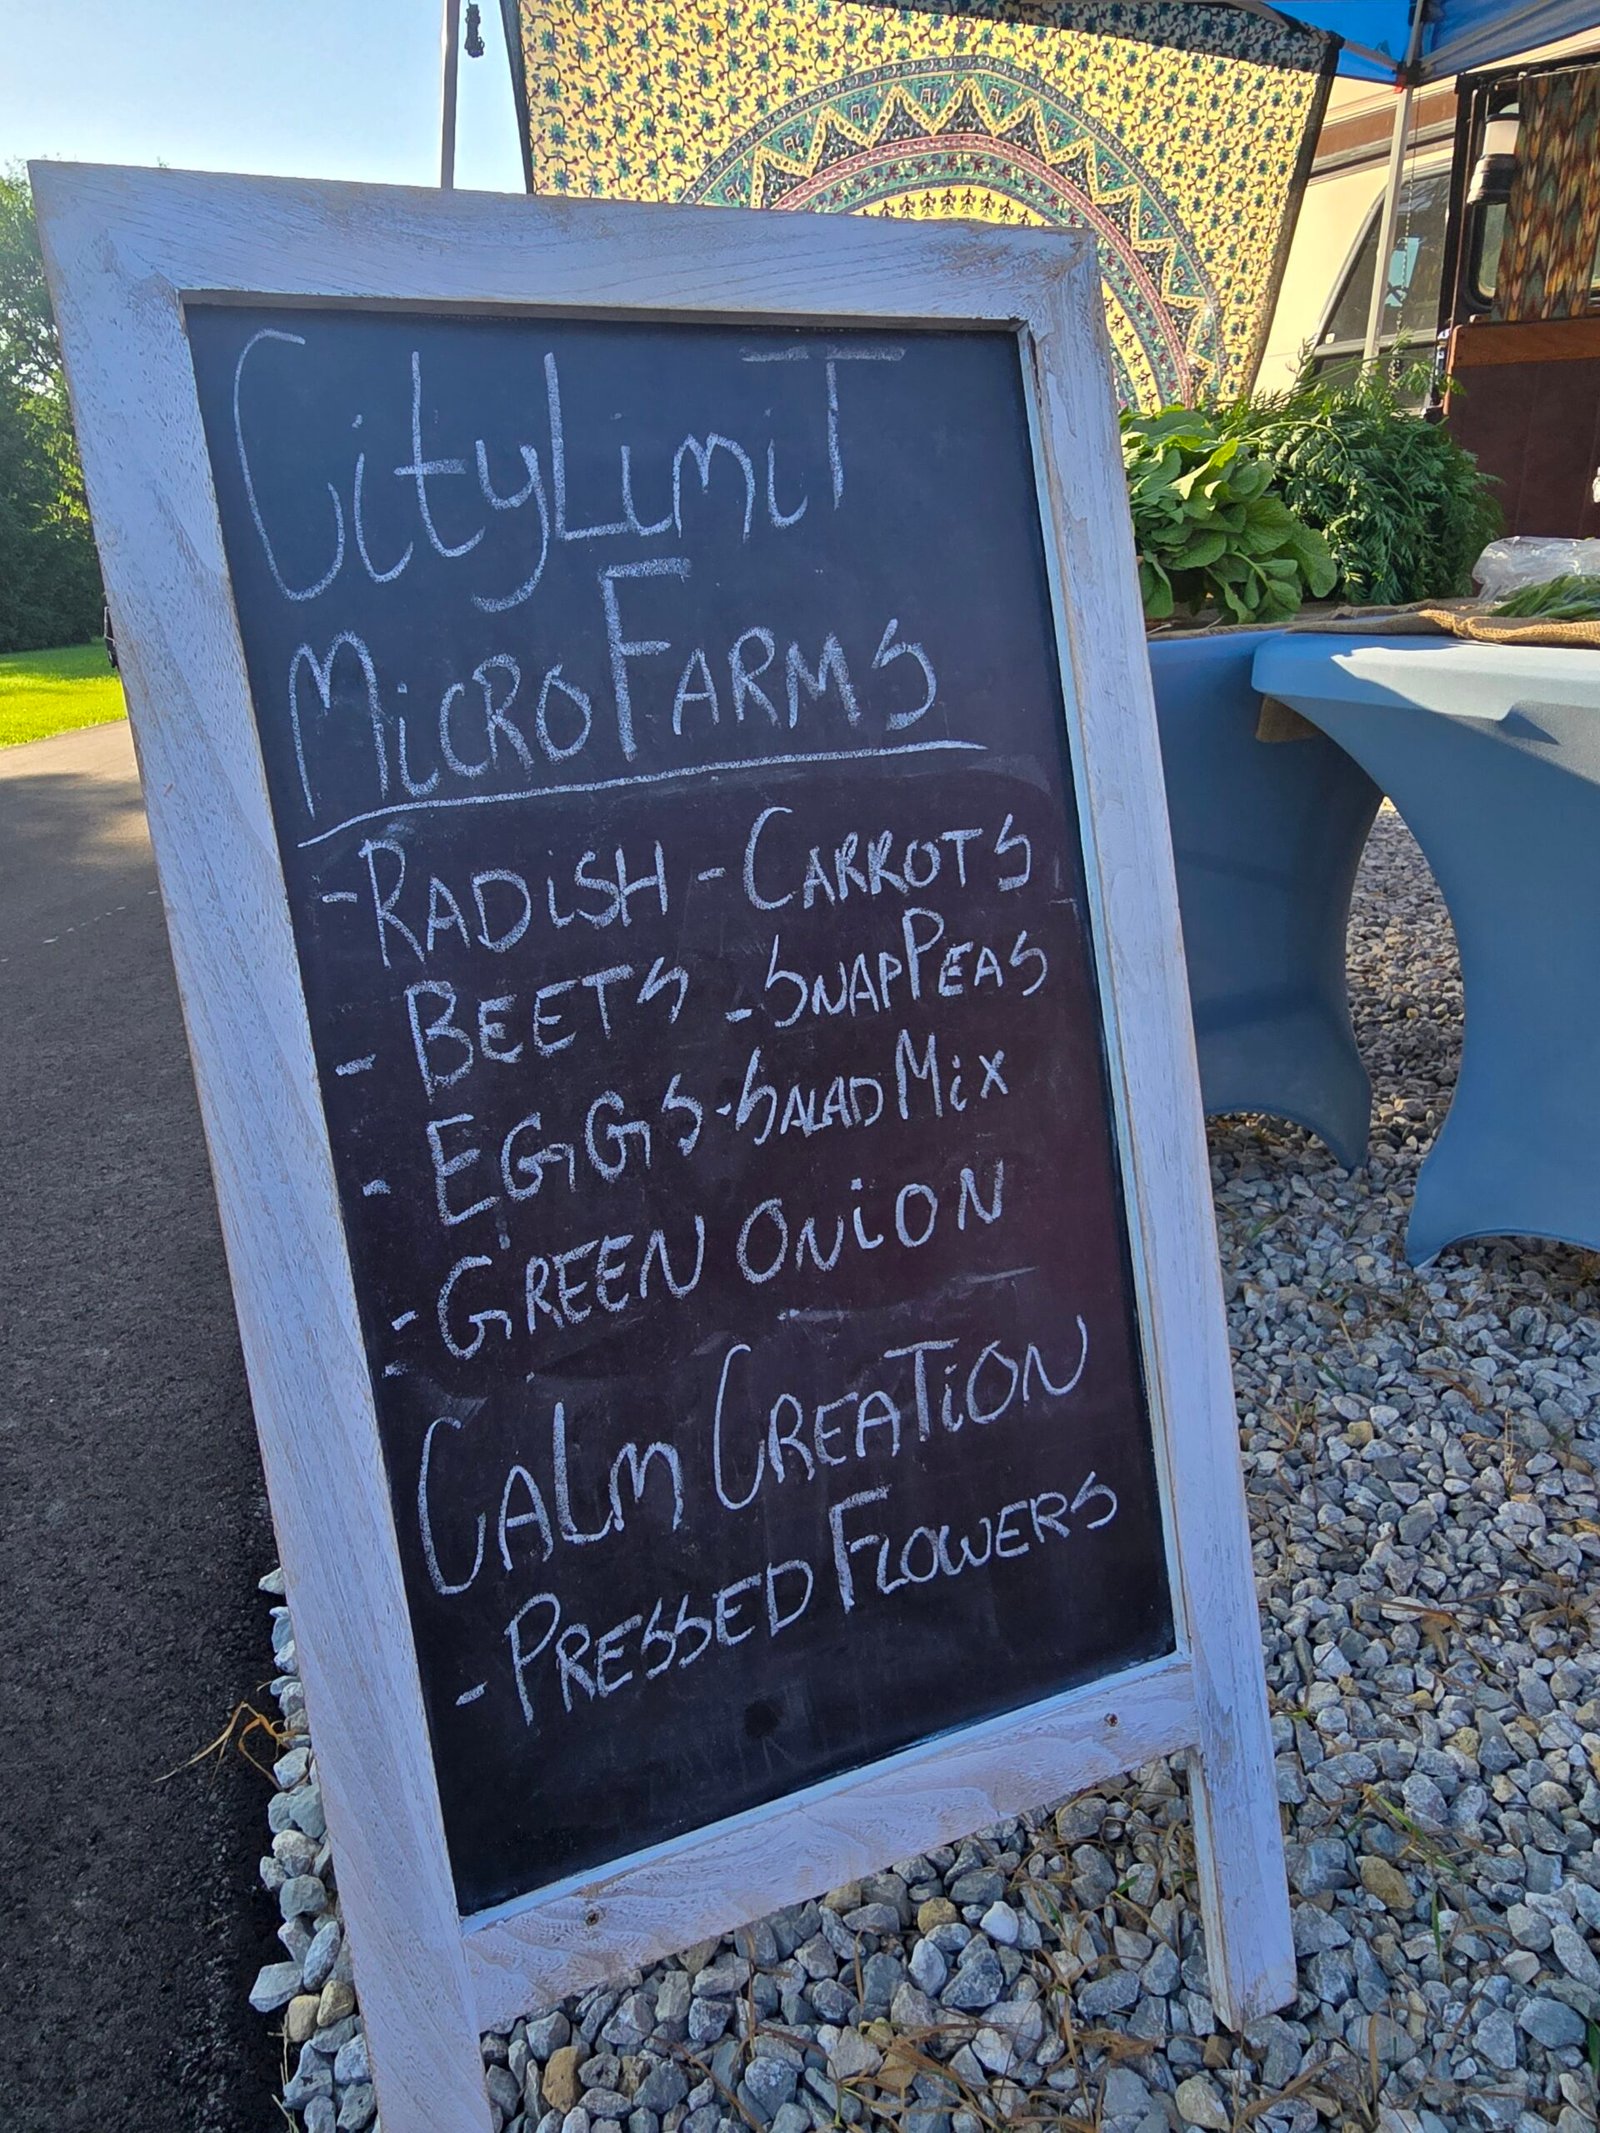 CityLimiT
MicroFarms
-RADiSH -CARROTS
- BEETS -SNAPPEAS
- EGGS -SALAD Mix
-GREEN ONiON
CALM CREATiON
-PRESSED FLOWERS